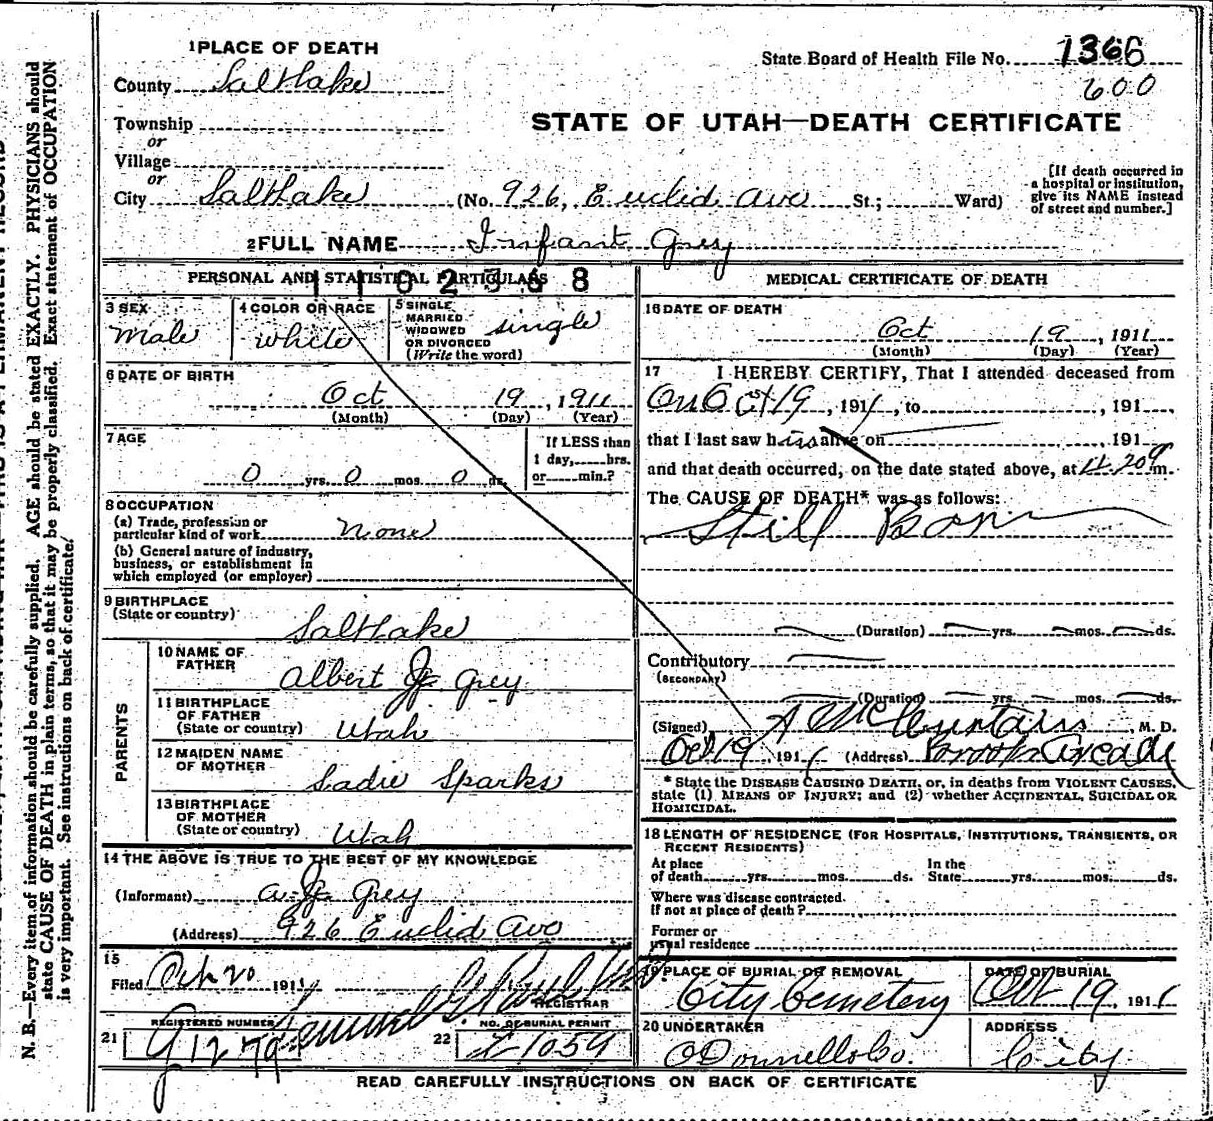 1 PLACE OF DEATH
State Board of Health File No. 1366
County Salt Lake
600
Township
or
STATE OF UTAH—DEATH CERTIFICATE
Village
or
City Salt Lake (No. 926, Euclid Ave St.; Ward)
[If death occurred in
a hospital or institution,
give its NAME instead
of street and number.]
2 FULL NAME Infant Grey
PERSONAL AND STATISTICAL PARTICULARS
1102368
3 SEX
Male
4 COLOR OR RACE
white
5 SINGLE
MARRIED
WIDOWED
OR DIVORCED
(Write the word)
single
6 DATE OF BIRTH
Oct 19, 1911
(Month) (Day) (Year)
7 AGE
0 yrs. 0 mos. 0 ds.
If LESS than
1 day, hrs.
or min.?
8 OCCUPATION
(a) Trade, profession or
particular kind of work None
(b) General nature of industry,
business, or establishment in
which employed (or employer)
9 BIRTHPLACE
(State or country)
Salt Lake
PARENTS
10 NAME OF
FATHER
Albert J. Grey
11 BIRTHPLACE
OF FATHER
(State or country) Utah
12 MAIDEN NAME
OF MOTHER
Sadie Sparks
13 BIRTHPLACE
OF MOTHER
(State or country) Utah
14 THE ABOVE IS TRUE TO THE BEST OF MY KNOWLEDGE
(Informant) A. J. Grey
(Address) 926 Euclid Ave
15
Filed Oct 20 1911
REGISTRAR
21 REGISTERED NUMBER
22 NO. OF BURIAL PERMIT
1059
MEDICAL CERTIFICATE OF DEATH
16 DATE OF DEATH
Oct 19, 1911
(Month) (Day) (Year)
17 I HEREBY CERTIFY, That I attended deceased from
On Oct 19, 1911, to , 191
that I last saw him alive on , 191
and that death occurred, on the date stated above, at m.
The CAUSE OF DEATH* was as follows:
Still Born
(Duration) yrs. mos. ds.
Contributory
(SECONDARY)
(Duration) yrs. mos. ds.
(Signed) M. D.
Oct 19, 1911 (Address) Brooks Arcade
* State the DISEASE CAUSING DEATH, or, in deaths from VIOLENT CAUSES,
state (1) MEANS OF INJURY; and (2) whether ACCIDENTAL, SUICIDAL OR
HOMICIDAL.
18 LENGTH OF RESIDENCE (FOR HOSPITALS, INSTITUTIONS, TRANSIENTS, OR
RECENT RESIDENTS)
At place
of death yrs. mos. ds.
In the
State yrs. mos. ds.
Where was disease contracted.
If not at place of death?
Former or
usual residence
19 PLACE OF BURIAL OR REMOVAL
City Cemetery
DATE OF BURIAL
Oct 19 1911
20 UNDERTAKER
O'Donnell & Co.
ADDRESS
City
READ CAREFULLY INSTRUCTIONS ON BACK OF CERTIFICATE
N. B.—Every item of information should be carefully supplied. AGE should be stated EXACTLY. PHYSICIANS should
state CAUSE OF DEATH in plain terms, so that it may be properly classified. Exact statement of OCCUPATION
is very important. See instructions on back of certificate.